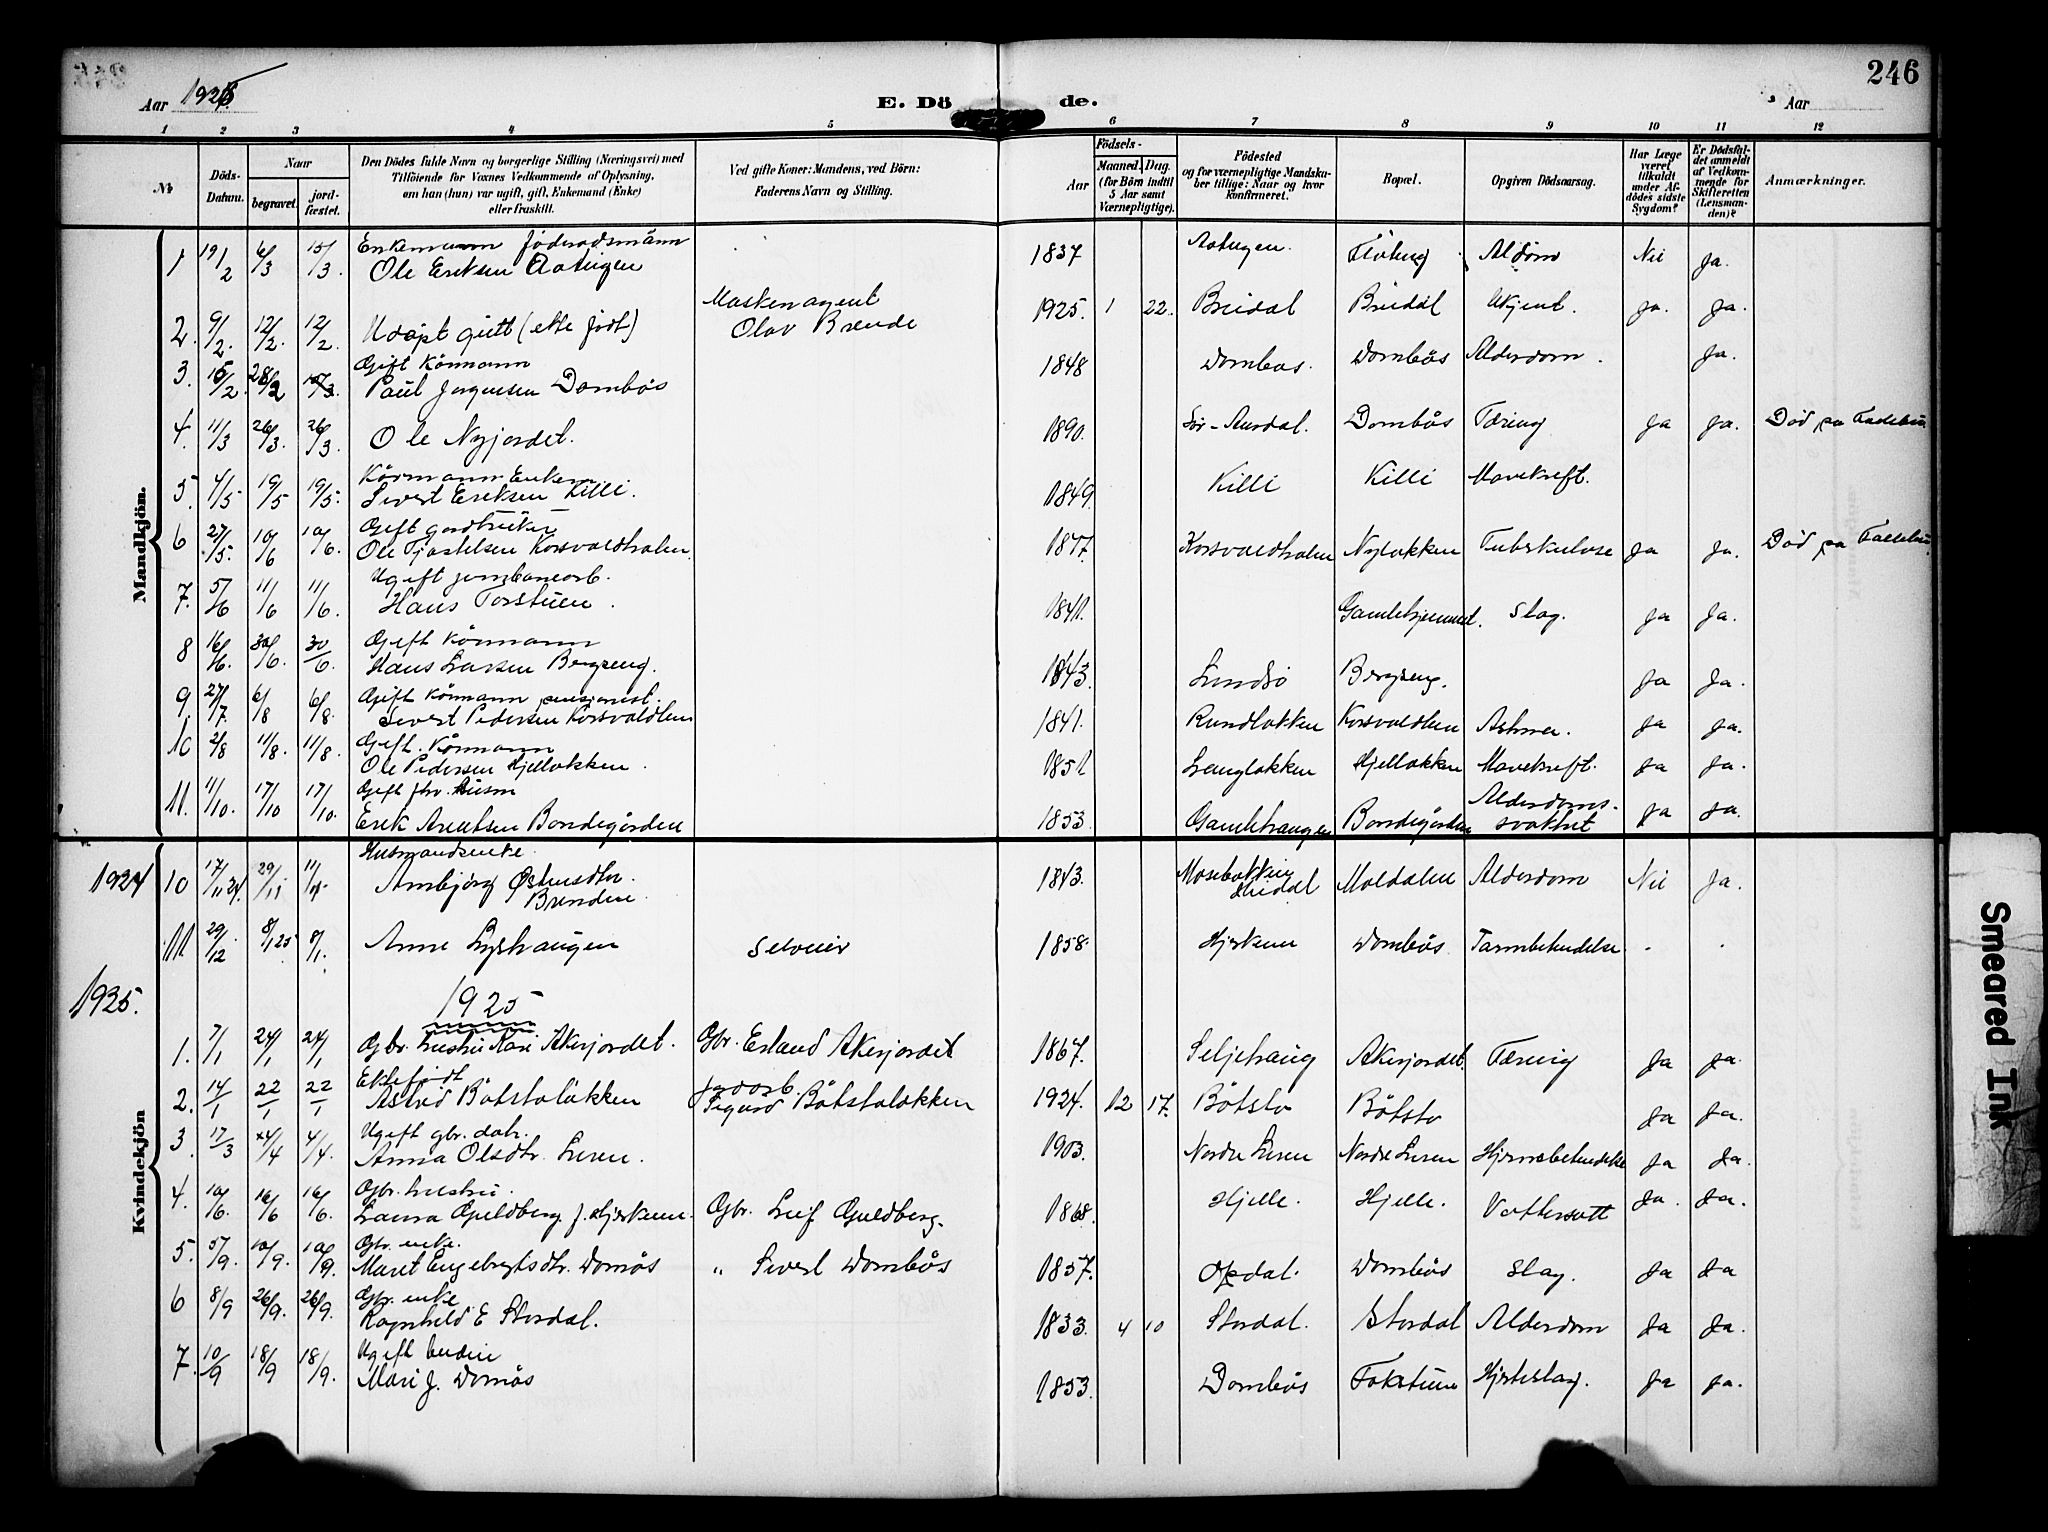 246
Aar 1925
E. Dö de.
Aar
1 2 3 4 5 6 7 8 9 10 11 12
№
Döds-Datum.
Naar
begravet.
jord-fæstet.
Den Dödes fulde Navn og borgerlige Stilling (Næringsvei) med
Tilföiende for Voxnes Vedkommende af Oplysning,
om han (hun) var ugift, gift, Enkemand (Enke)
eller fraskilt.
Ved gifte Koner: Mandens, ved Börn:
Faderens Navn og Stilling.
Födsels-
Aar
Maaned. Dag.
(for Börn indtil
5 Aar samt
Værnepligtige).
Födested
og for værnepligtige Mandska-
ber tillige: Naar og hvor
konfirmeret.
Bopæl.
Opgiven Dödsaarsag.
Har Læge
været
tilkaldt
under Af-
dödes sidste
Sygdom?
Er Dödsfal-
det anmeldt
af Vedkom-
mende for
Skifteretten
(Lensman-
den)?
Anmærkninger.
Mandkjön.
1 19/2 6/3 15/3 Enkemann föderådsmann
Ole Eriksen 1837 Nei Ja.
2. 9/2. 12/2. 12/2. Udöpt gutt (ekte født) Maskenagent
Olav Brende 1925. 1 22. Bredal Ukjent. ja. ja.
3. 28/2 Gift Kårmann
Paul Jørgensen Dombås 1848 Dombås. Dombås Alderdom. ja.
4. 11/3 26/3. 26/3. Ole Nyjordet. 1890. Sør-Aurdal. Dombås Tæring ja ja. Död på
5 4/5 19/5 19/5. Kårmann Enkem
Sivert Eriksen Killi. 1849. Killi Killi Mavekreft.
6 27/5. 10/6 10/6. Gift gardbruker
Ole Korsvoldhalen. Korsvoldhalen Nyløkken Tuberkulose ja ja. Död på
7. 5/6 11/6 11/6. Ugift jernbanearb.
Hans Torstuen. 1841. Gamlehjemmet. Slag. ja ja.
8 16/6. 30/6. 30/6. Gift Kårmann
Hans Larsen Bergseng. 1843. Lundsö Bergseng. ja ja.
9. 27/7. 6/8 6/8. Gift Kårmann pensjonist.
Sivert Pedersen Korsvoldhn 1841. Rundløkken Korsvoldhen Astma. ja ja.
10 2/8 11/8. 11/8. Gift. Kårmann
Ole Pedersen Hjelløkken. 1851 Langløkken Hjelløkken Mavekreft. ja ja.
11. 11/10. 17/10 17/10. Gift fhv. husm
Erik Arentsen Bondegården 1853. Gamlehaugen Bondegården Alderdoms-
svakhet ja ja.
Kvindekjön
1924 10 17/11 24. 29/11 Husmandsenke.
Anbjørg Østensdtr.
Brenden. 1843. Moldalen Alderdom Nei ja.
11. 29/12. 8/1 25 8/1. Anne Lyshaugen Selveier 1858. Hjerkinn Dombås. Tarmbetendelse
1925.
1925
1. 7/1 24/1 24/1 Gbr. hustru Kari Akerjordet. Gbr. Erland Akerjordet 1867. Seljehaug Akerjordet. Tæring ja ja.
2. 14/1 22/1 22/1 Ektefødt
Astrid Båtstoløkken jordarb.
Sigurd Båtstoløkken 1924. 12 17. Båtstø Båtstø ja ja.
3. 17/3 4/4 4/4. Ugift gbr. datr.
Anna Olsdtr. Luren. 1903. Nordre Luren Nordre Luren Hjernebetendelse ja ja.
4. 10/6. 16/6 16/6. Gbr. hustru.
Laura Guldberg f. Hjerkinn. Gbr. Leif Guldberg. 1868. Hjelle. Hjelle. Vattersott ja. ja.
5. 5/9. 10/9. 10/9. Gbr. enke.
Marit Engebregtsdtr. Domås „ Sivert Dombås 1857. Opdal. Dombås Slag. ja ja
6 8/9 26/9. 26/9. Gbr. enke
Ragnhild E Stordal. 1833. 4 10 Stordal. Stordal Alderdom ja ja.
7. 10/9 18/9 18/9. Ugift budeie
Mari J. Domås 1853. Dombås Fokstuen Hjerteslag. ja ja.
Smeared Ink